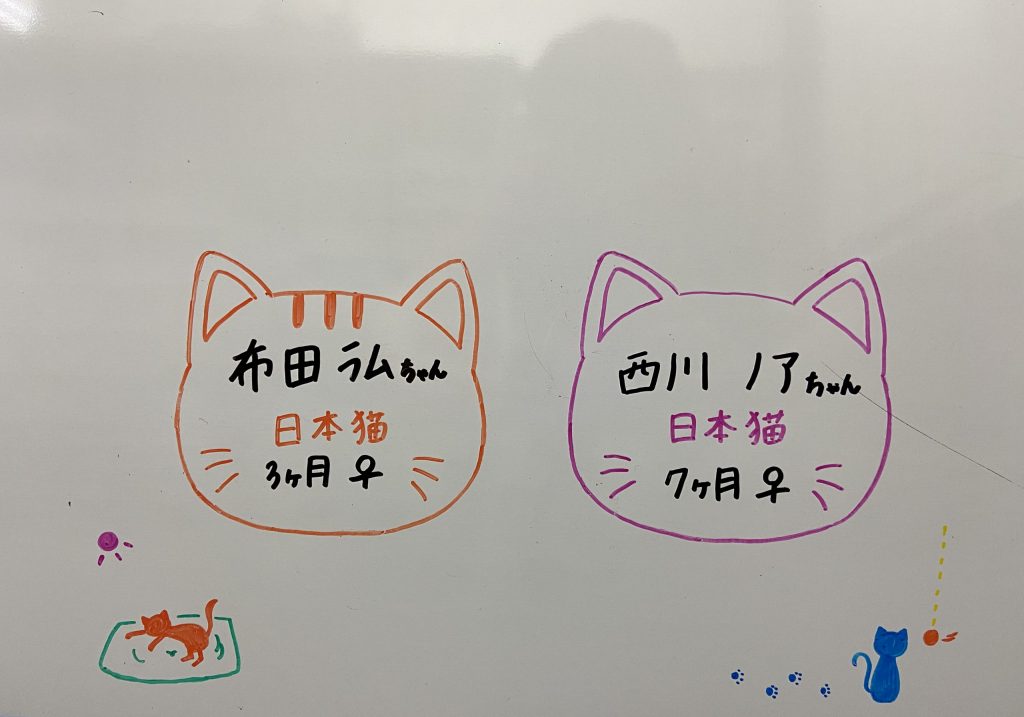 布田 ラムちゃん
日本猫
3ヶ月 ♀
西川 ノアちゃん
日本猫
7ヶ月 ♀